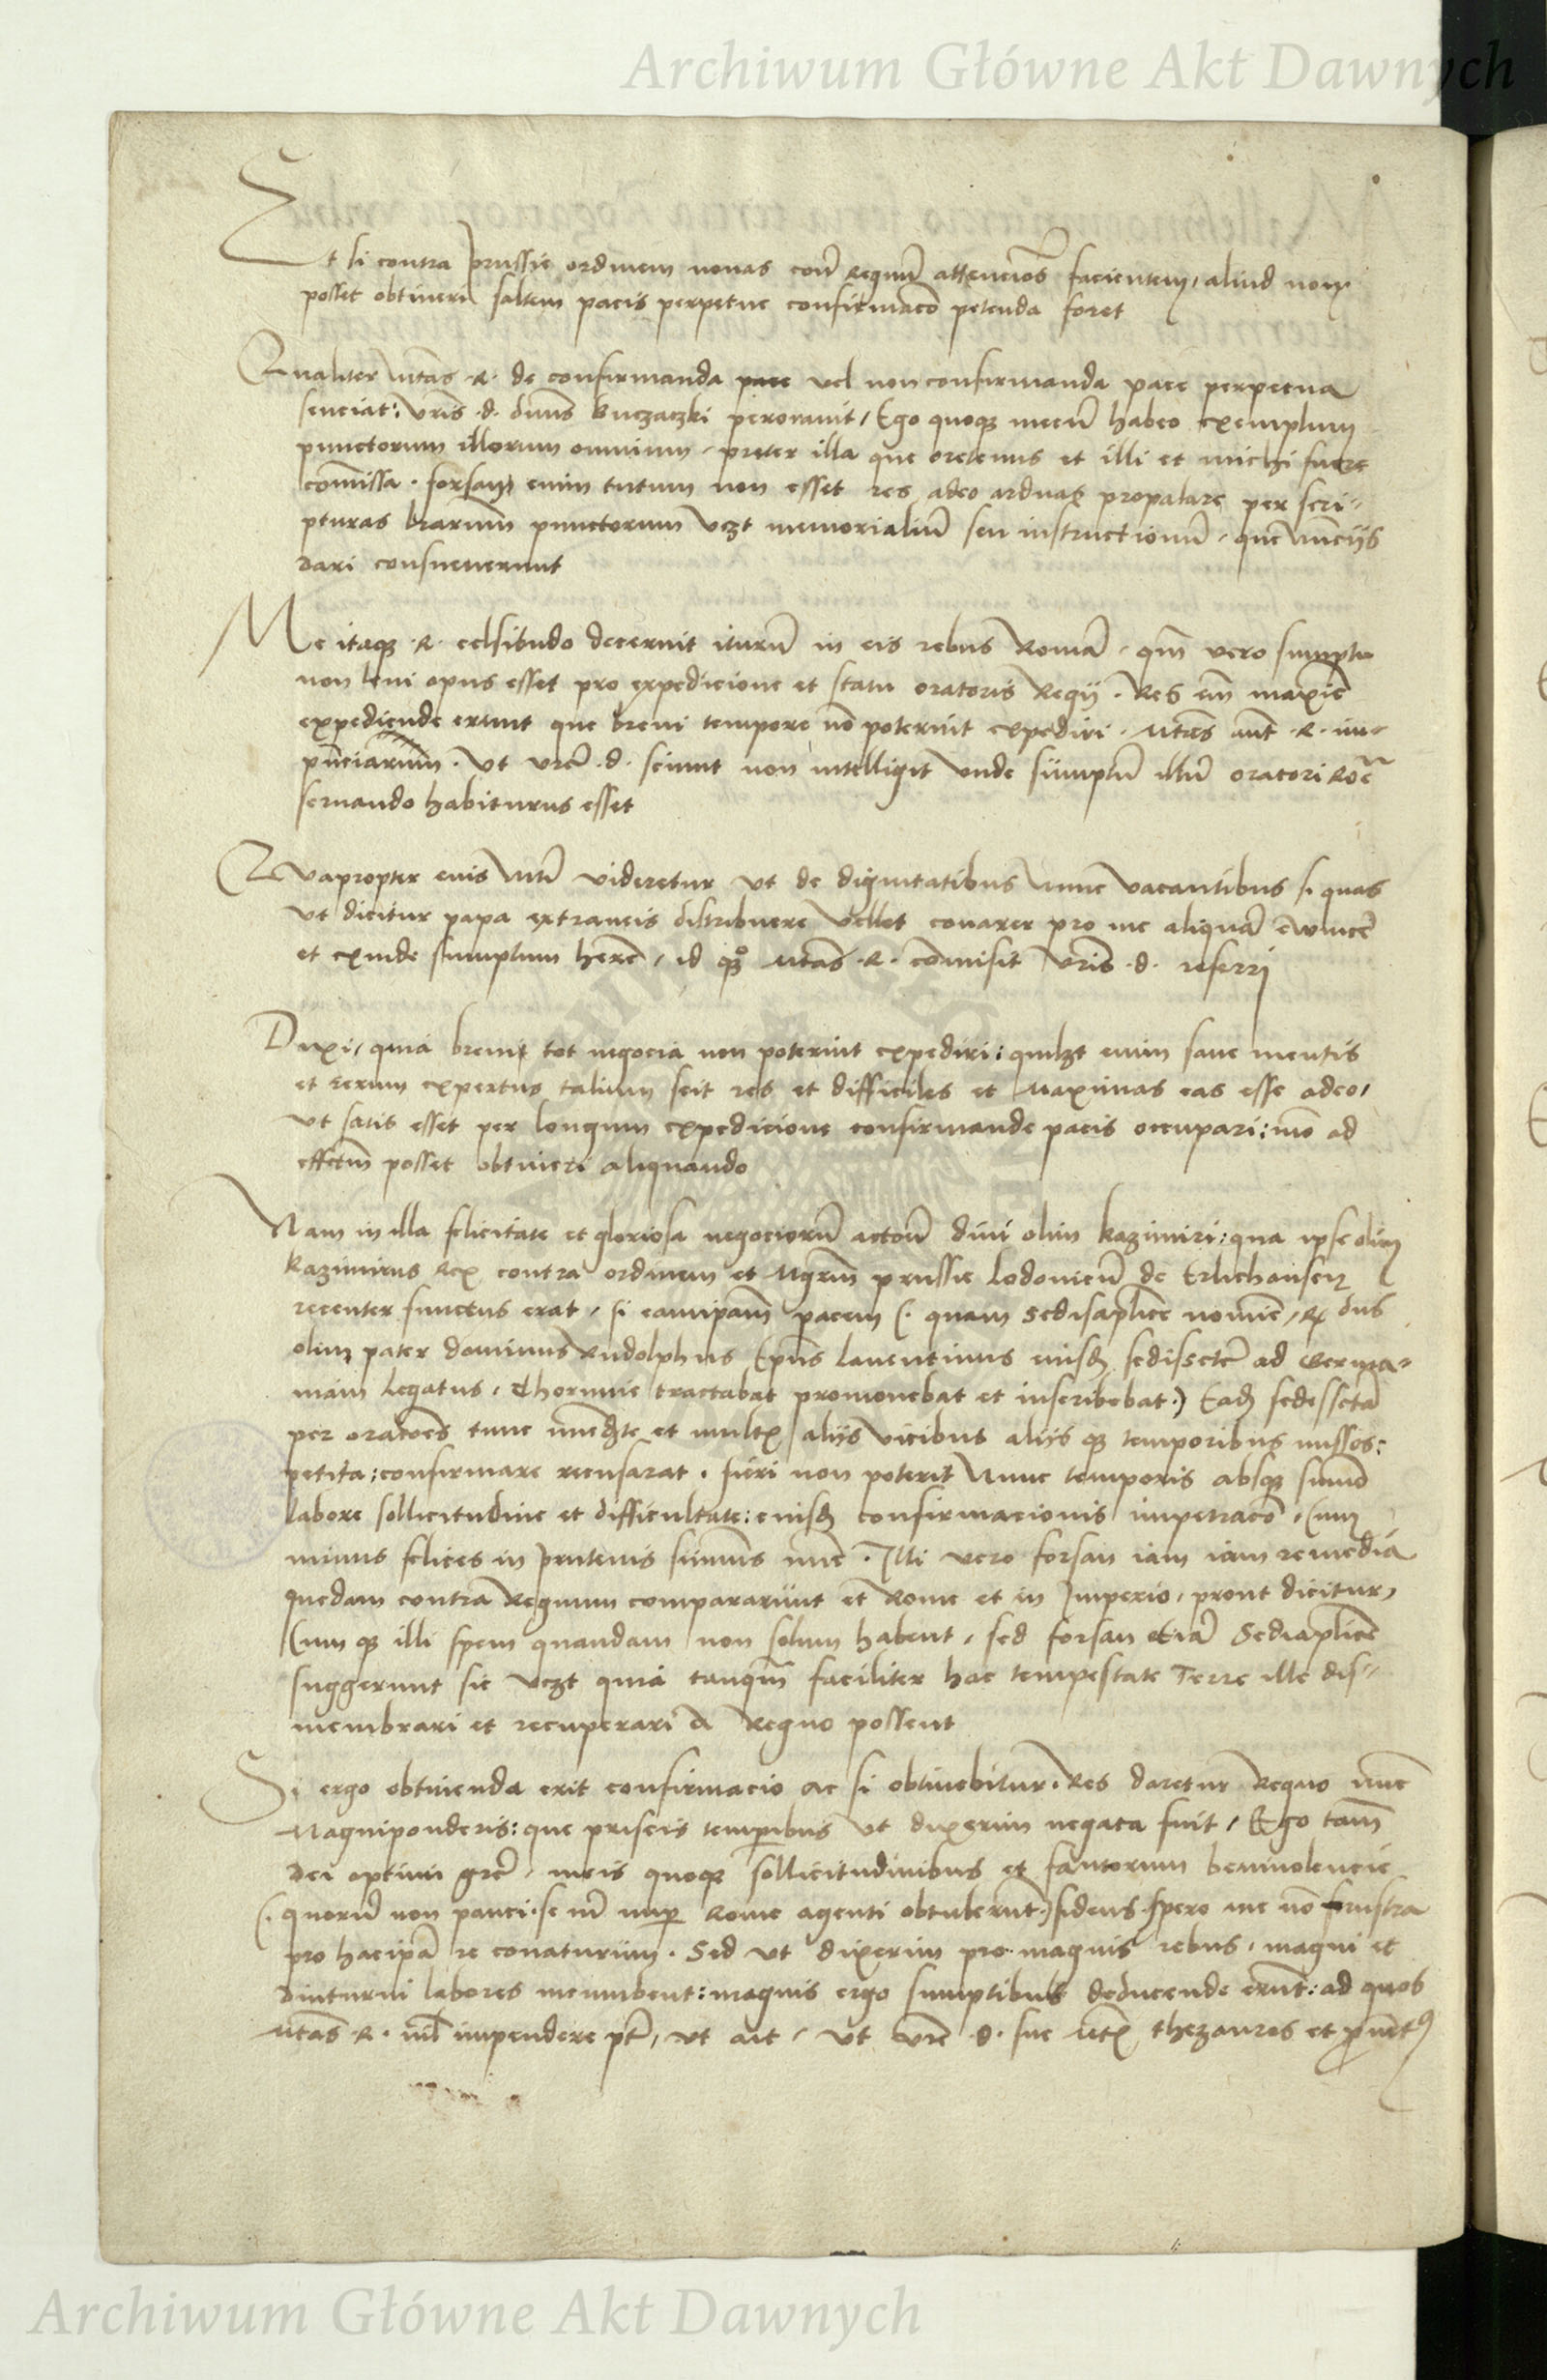 Archiwum Główne Akt Dawnych
Et si contra prussie ordinem nonas contra Regnum attenciones facientem, aliud non
posset obtineri saltem pacis perpetue confirmaco petenda foret
Qualiter Mtas .R. de confirmanda pace vel non confirmanda pace perpetua
senciat: vris .d. dnus Buczaczki perorauit / Ego quoque mecu habeo exemplum
punctorum illorum omnium, preter illa que oretenus et illi et michi fuere
comissa . forsan enim tutum non esset res adeo arduas propalare per scri-
pturas brarum punctorum vczt memorialiu seu instructionu, que nuncijs
dari consueuerunt
Me itaque .R. celsitudo decernit iturum in eis rebus Romam, qm vero sumptu
non leui opus esset pro expedicione et statu oratoris Regij . Res em maxime
expediende erunt que breui tempore no poterint expediri . Mtas aut .R.
vt vre .d. sciunt non intelligit vnde sumptu illu oratori Rome
seruando habiturus esset
Quapropter eius Mti videretur vt de dignitatibus nunc vacantibus si quas
vt dicitur papa extraneis distribuere vellet conarer pro me aliquam euincere
et exinde sumptum here, id quoque Mtas .R. comisit vris .d. referri
Duxi, quia breui tot negocia non poterint expediri: quilzt enim sane mentis
et rerum expertus talium scit res et difficiles et maximas eas esse adeo,
vt satis esset per longum expedicione confirmande pacis occupari: mo ad
effectum posset obtineri aliquando
Nam in illa felicitate et gloriosa negocioru actoru diui olim Kazimiri: qua ipse olim
Kazimirus Rex contra ordinem et Mgrm prussie Lodouicu de Erlichausen
recenter functus erat, si eam ipam pacem (. quam Sedis aplice nomine, R dns
olim pater dominus Rudolphus Epus Lauentinus eiusdem sedis scte ad Germa-
niam Legatus, Thorunie tractabat promouebat et inscribebat .) Eadem sedes scta
per oratores tunc et multis alijs vicibus alijs que temporibus missos:
petita: confirmare recusarat . fieri non poterit Nunc temporis absque sumo
labore sollicitudine et difficultate: eiusdem confirmacionis impetraco . Cum
minus felices in prutenis simus nunc . Illi vero forsan iam iam remedia
quedam contra Regnum compararunt et Rome et in Imperio, prout dicitur,
Cum que illi spem quandam non solum habent, sed forsan etiam Sedi aplice
suggerunt sic vczt quia tanqm faciliter hac tempestate Terre ille dis-
membrari et recuperari a Regno possent
Si ergo obtinenda erit confirmacio ac si obtinebitur . Res daretur Regno nunc
Magni ponderis: que priscis temporibus vt dixerim negata fuit, Ego tam
dei optimi gre, meis quoque sollicitudinibus et fautorum beniuolencie
(. quoru non pauci se m nup Rome agenti obtulerunt .) fidens. spero me no frustra
pro hac ipa re conaturum . Sed vt dixerim pro magnis rebus, magni et
diuturni labores incumbent: magnis ergo sumptibus deducende erunt: ad quos
Mtas .R. nil impendere pt, vt ait, vt vre .d. sue Mtis thezauros et prouentus
Archiwum Główne Akt Dawnych